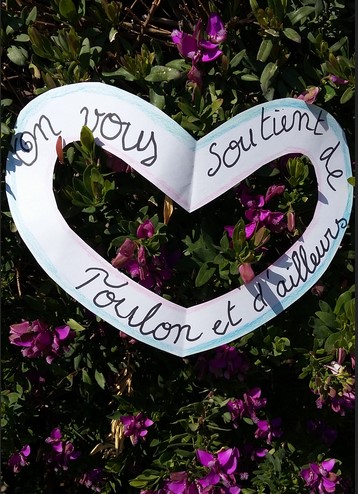 on vous soutient de
Toulon et d'ailleurs